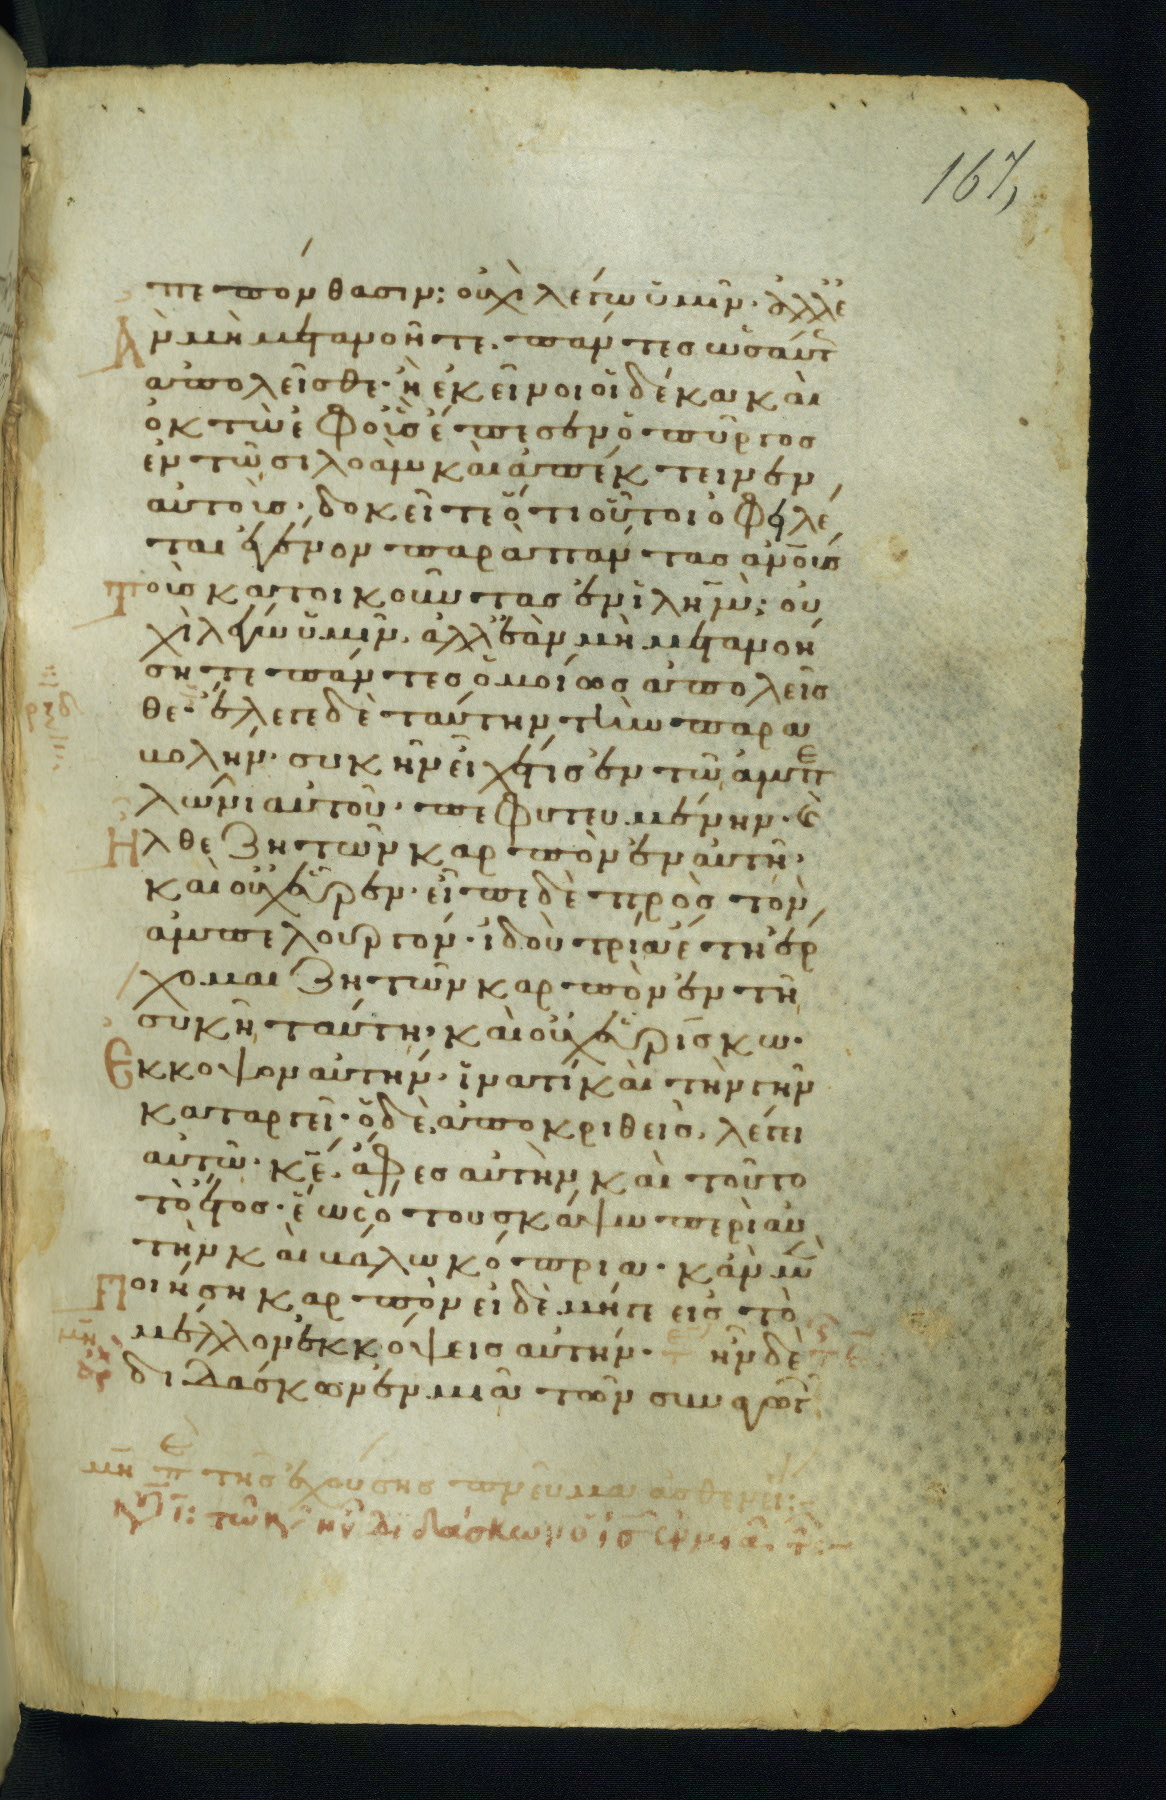 167,
πεπόνθασιν; οὐχὶ λέγω ὑμῖν· ἀλλ' ἐ
ὰν μὴ μετανοῆτε. πάντες ὡσαύτ
ἀπολεῖσθε· ἢ ἐκεῖνοι οἱ δέκα καὶ
ὀκτὼ ἐφ' οἷς ἔπεσεν ὁ πύργος
ἐν τῷ σιλοὰμ καὶ ἀπέκτεινεν
αὐτοὺς· δοκεῖτε ὅτι οὗτοι ὀφειλέ
ται ἐγένοντο παρὰ πάντας ἀνοὺς
τοὺς κατοικοῦντας ἐν ἰλημ; οὐ
χὶ λέγω ὑμῖν, ἀλλ' ἐὰν μὴ μετανοή
σητε πάντες ὁμοίως ἀπολεῖσ
ρξδ
θε· ἔλεγε δὲ ταύτην τὴν παρα
βολήν· συκῆν εἶχέ τις ἐν τῷ ἀμπε
λῶνι αὐτοῦ· πεφυτευμένην· καὶ
ἦλθε ζητῶν καρπὸν ἐν αὐτῇ·
καὶ οὐχ εὗρεν· εἶπε δὲ πρὸς τὸν
ἀμπελουργόν· ἰδοὺ τρία ἔτη ἔρ
χομαι ζητῶν καρπὸν ἐν τῇ
συκῇ ταύτῃ· καὶ οὐχ εὑρίσκω·
ἔκκοψον αὐτήν· ἱνατί καὶ τὴν γῆν
καταργεῖ· ὁ δὲ ἀποκριθεὶς, λέγει
αὐτῷ· κε, ἄφες αὐτὴν καὶ τοῦτο
τὸ ἔτος· ἕως ὅτου σκάψω περὶ αὐ
τὴν καὶ βάλω κόπρια· κἂν μὲν
ποιήσῃ καρπὸν εἰ δὲ μήγε εἰς τὸ
μέλλον ἐκκόψεις αὐτήν· ἦν δὲ
διδάσκων ἐν μιᾷ τῶν συναγωγ
μη πε τῆς ἐχούσης πνεῦμα ἀσθενεί:-
τῶ κ ἦν διδάσκων ὁ ις ἐν μιᾷ τ:-